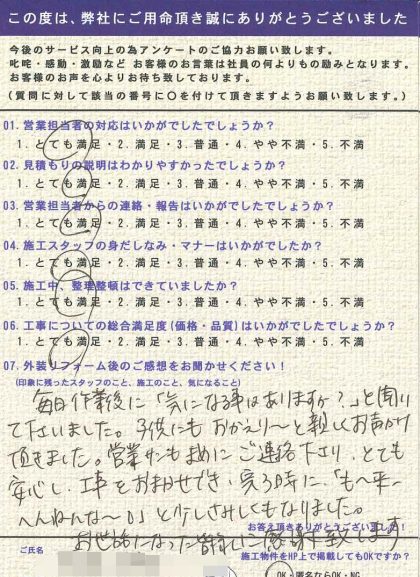 この度は、弊社にご用命頂き誠にありがとうございました
今後のサービス向上の為アンケートのご協力お願い致します。
叱咤・感動・激励など お客様のお言葉は社員の何よりもの励みとなります。
お客様のお声を心よりお待ち致しております。
(質問に対して該当の番号に〇を付けて頂きますようお願い致します。)
01. 営業担当者の対応はいかがでしたでしょうか?
1. とても満足・2. 満足・3. 普通・4. やや不満・5. 不満
02. 見積もりの説明はわかりやすかったでしょうか?
1. とても満足・2. 満足・3. 普通・4. やや不満・5. 不満
03. 営業担当者からの連絡・報告はいかがでしたでしょうか?
1. とても満足・2. 満足・3. 普通・4. やや不満・5. 不満
04. 施工スタッフの身だしなみ・マナーはいかがでしたか?
1. とても満足・2. 満足・3. 普通・4. やや不満・5. 不満
05. 施工中、整理整頓はできていましたか?
1. とても満足・2. 満足・3. 普通・4. やや不満・5. 不満
06. 工事についての総合満足度(価格・品質)はいかがでしたでしょうか?
1. とても満足・2. 満足・3. 普通・4. やや不満・5. 不満
07. 外装リフォーム後のご感想をお聞かせください!
(印象に残ったスタッフのこと、施工のこと、気になること)
毎日作業後に「気になる事はありますか?」と聞い
て下さいました。子供にも おかえり〜と親しくお声がけ
頂きました。営業サンもまめに ご連絡下さり、とても
安心し、工事をお任せでき、完了時に「もう来-
へんねんな〜」と少しさみしくもなりました。
お答え頂きありがとうございました!
お世話になった皆様に感謝致します
ご氏名
施工物件をHP上で掲載してもOKですか?
OK・匿名ならOK・NG